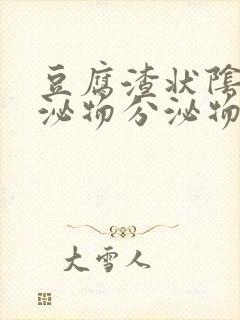 豆腐渣状陰
泌物分泌物
大雪人